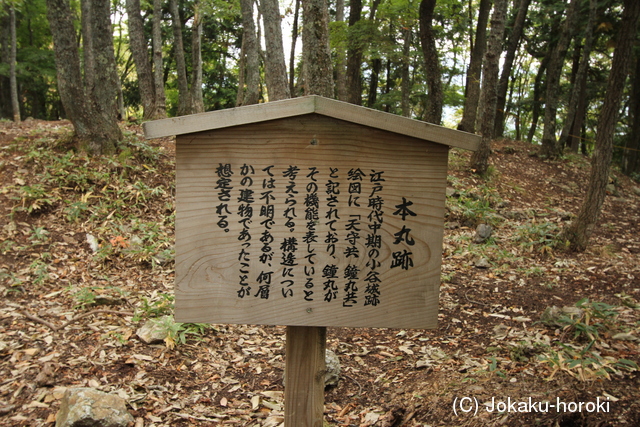 本丸跡
江戸時代中期の小谷城跡
絵図に「天守共 鐘丸共」
と記されており、鐘丸が
その機能を表していると
考えられる。構造につい
ては不明であるが、何層
かの建物であったことが
想定される。
(C)Jokaku-horoki